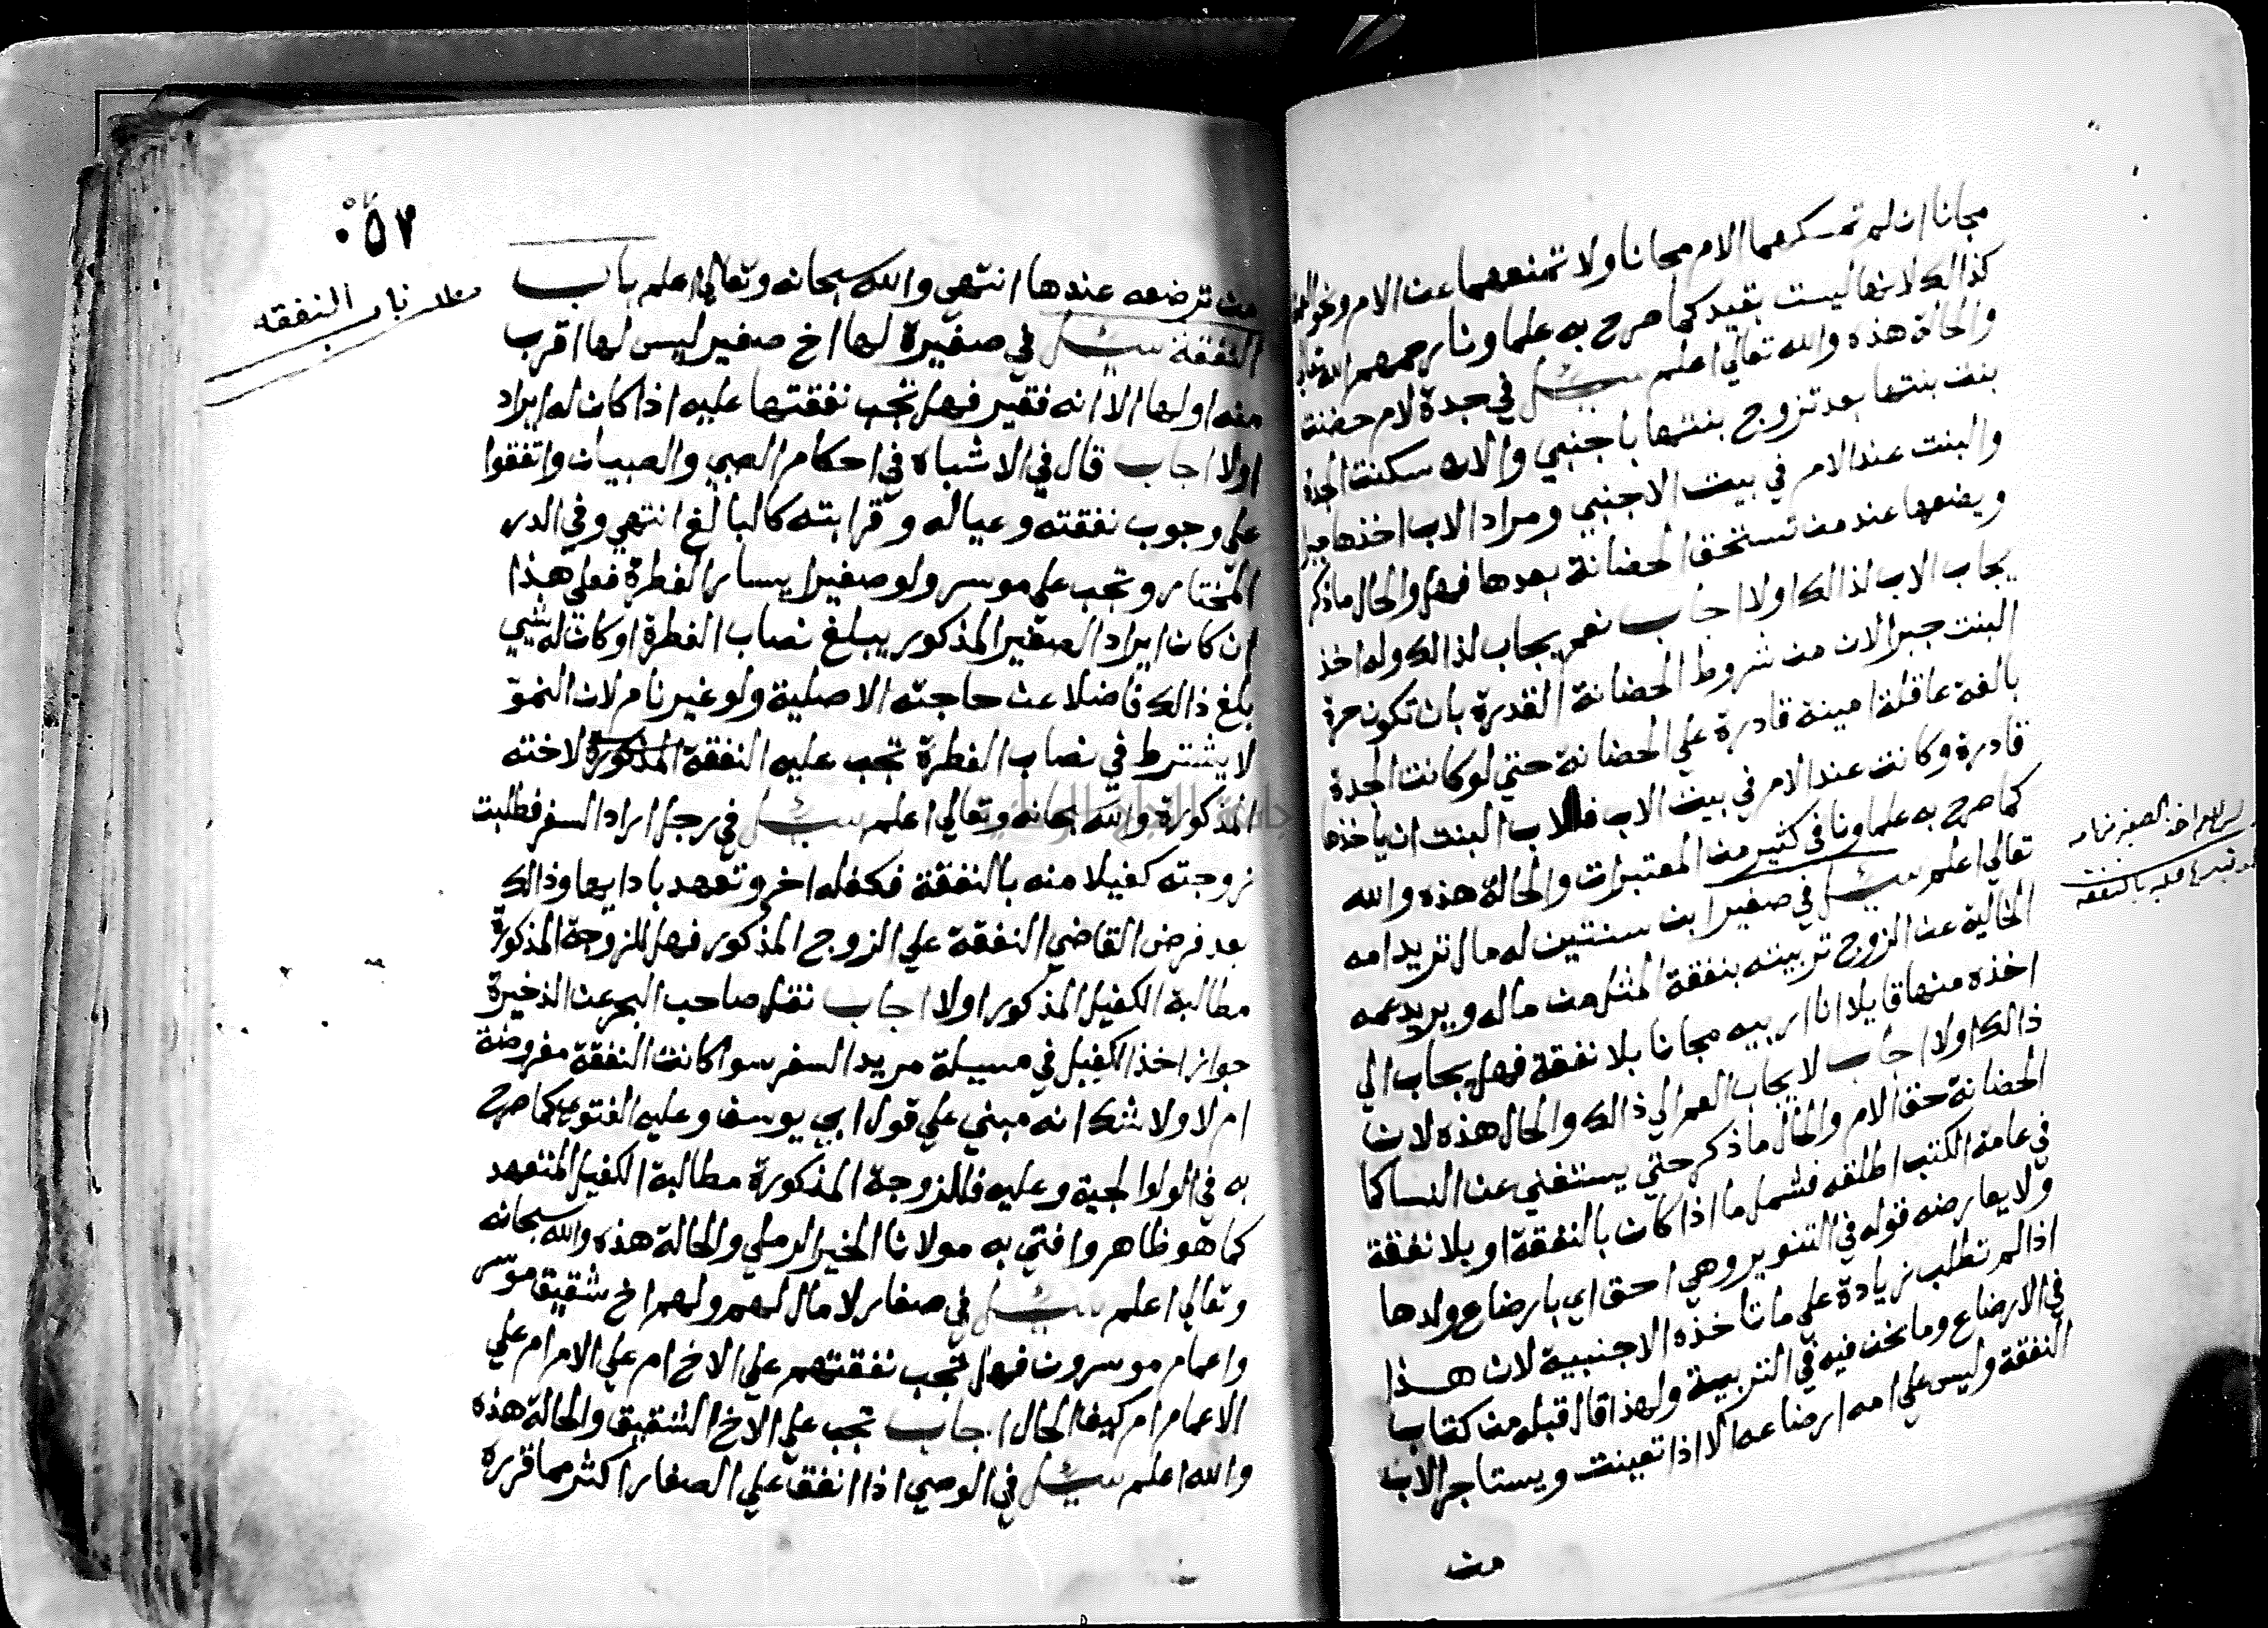 مجانا ان لم تمسكهما الام مجانا ولا تمنعهما عن الام ونحو
كذالك لانها ليست بقيد كما صرح به علماونا رحمهم الله تعالى
والحالة هذه والله تعالي اعلم سئل في جدة لام حضنت
بنت بنتها بعد تزوج بنتها باجنبي والان سكنت الجدة
والبنت عند الام في بيت الاجنبي ومراد الاب اخذها
ويضعها عند من تستحق الحضانة بعدها فهل والحال ماذكر
يجاب الاب لذالك اولا اجاب نعم يجاب لذالك وله اخذ
البنت جبرا لان من شروط الحضانة القدرة بان تكون حرة
بالغة عاقلة امينة قادرة علي الحضانة حتي لو كانت الجدة
قادرة وكانت عند الام في بيت الاب فللاب البنت ان ياخذها
كما صرح به علماونا في كثير من المعتبرات والحالة هذه والله
تعالي اعلم سئل في صغير ابن سنتين له مال تريد امه
الخالية عن الزوج تربيته بنفقة المثل من ماله ويريد عمه
اخذه منها قايلا انا اربيه مجانا بلا نفقة فهل يجاب الي
ذالك اولا اجاب لا يجاب العم الي ذالك والحال هذه لان
الحضانة حق الام والحال ماذكر حتي يستغني عن النسا كما
في عامة الكتب اطلقه فشمل ما اذا كان بالنفقة او بلا نفقة
ولا يعارضه قوله في التنوير وهي احق اي بارضاع ولدها
اذا لم تطلب زيادة علي ما تاخذه الاجنبية لان هذا
في الارضاع وما نحن فيه في التربية ولهذا قال قبله من كتاب
النفقة وليس علي امه ارضاعه الا اذا تعينت ويستاجر الاب
من
اخذ الصغير من امه
بالنفقة
٠٥٧
مطلب باب النفقه
من ترضعه عندها انتهي والله سبحانه وتعالي اعلم باب
النفقة سئل في صغيرة لها اخ صغير ليس لها اقرب
منه اولها الا انه فقير فهل تجب نفقتها عليه اذا كان له ايراد
اولا اجاب قال في الاشباه في احكام الصبي والصبيان واتفقوا
علي وجوب نفقته وعياله وقرابته كالبالغ انتهي وفي الدر
المختار وتجب علي موسر ولو صغيرا يسار الفطرة فعلي هذا
ان كان ايراد الصغير المذكور يبلغ نصاب الفطرة او كان له شيي
بلغ ذالك فاضلا عن حاجته الاصلية ولو غير نام لان النمو
لا يشترط في نصاب الفطرة تجب عليه النفقة المذكورة لاخته
المذكورة والله سبحانه وتعالي اعلم سئل في رجل اراد السفر فطلبت
زوجته كفيلا منه بالنفقة فكفله اخر وتعهد بادايها وذالك
بعد فرض القاضي النفقة علي الزوج المذكور فهل للزوجة المذكورة
مطالبة الكفيل المذكور اولا اجاب نقل صاحب البحر عن الذخيرة
جواز اخذ الكفيل في مسيلة مريد السفر سوا كانت النفقة مفروضة
ام لا ولا شك انه مبني علي قول ابي يوسف وعليه الفتوي كما صرح
به في الولوالجية وعليه فللزوجة المذكورة مطالبة الكفيل المتعهد
كما هو ظاهر وافتي به مولانا الخير الرملي والحالة هذه والله سبحانه
وتعالي اعلم سئل في صغار لا مال لهم ولهم اخ شقيق موسر
واعمام موسرون فهل تجب نفقتهم علي الاخ ام علي الام ام علي
الاعمام ام كيف الحال اجاب تجب علي الاخ الشقيق والحالة هذه
والله اعلم سئل في الوصي اذا انفق علي الصغار اكثر مما قرره